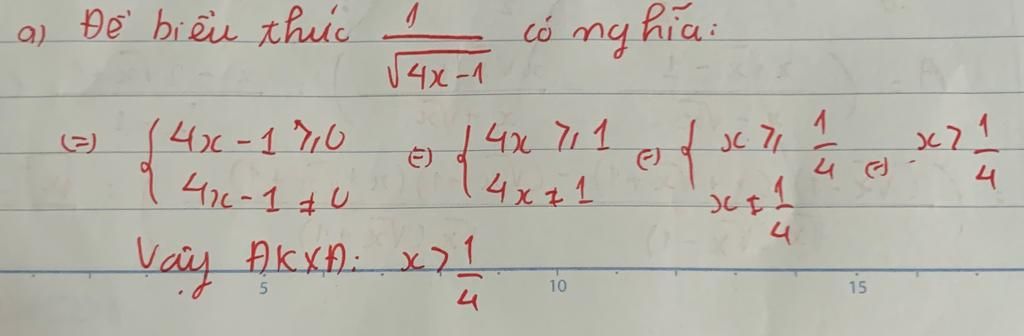 a) Để biểu thức \frac{1}{\sqrt{4x-1}} có nghĩa:
(=) { 4x - 1 ⩾ 0 ; 4x - 1 ≠ 0 (=) { 4x ⩾ 1 ; 4x ≠ 1 (=) { x ⩾ \frac{1}{4} ; x ≠ \frac{1}{4} (=) x > \frac{1}{4}
Vậy ĐKXĐ: x > \frac{1}{4}
5 10 15